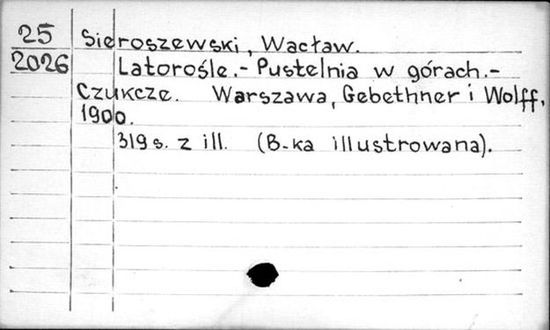 25
2026
Sieroszewski, Wacław.
Latorośle.- Pustelnia w górach.-
Czukcze. Warszawa, Gebethner i Wolff,
1900.
319 s. z ill. (B-ka illustrowana).